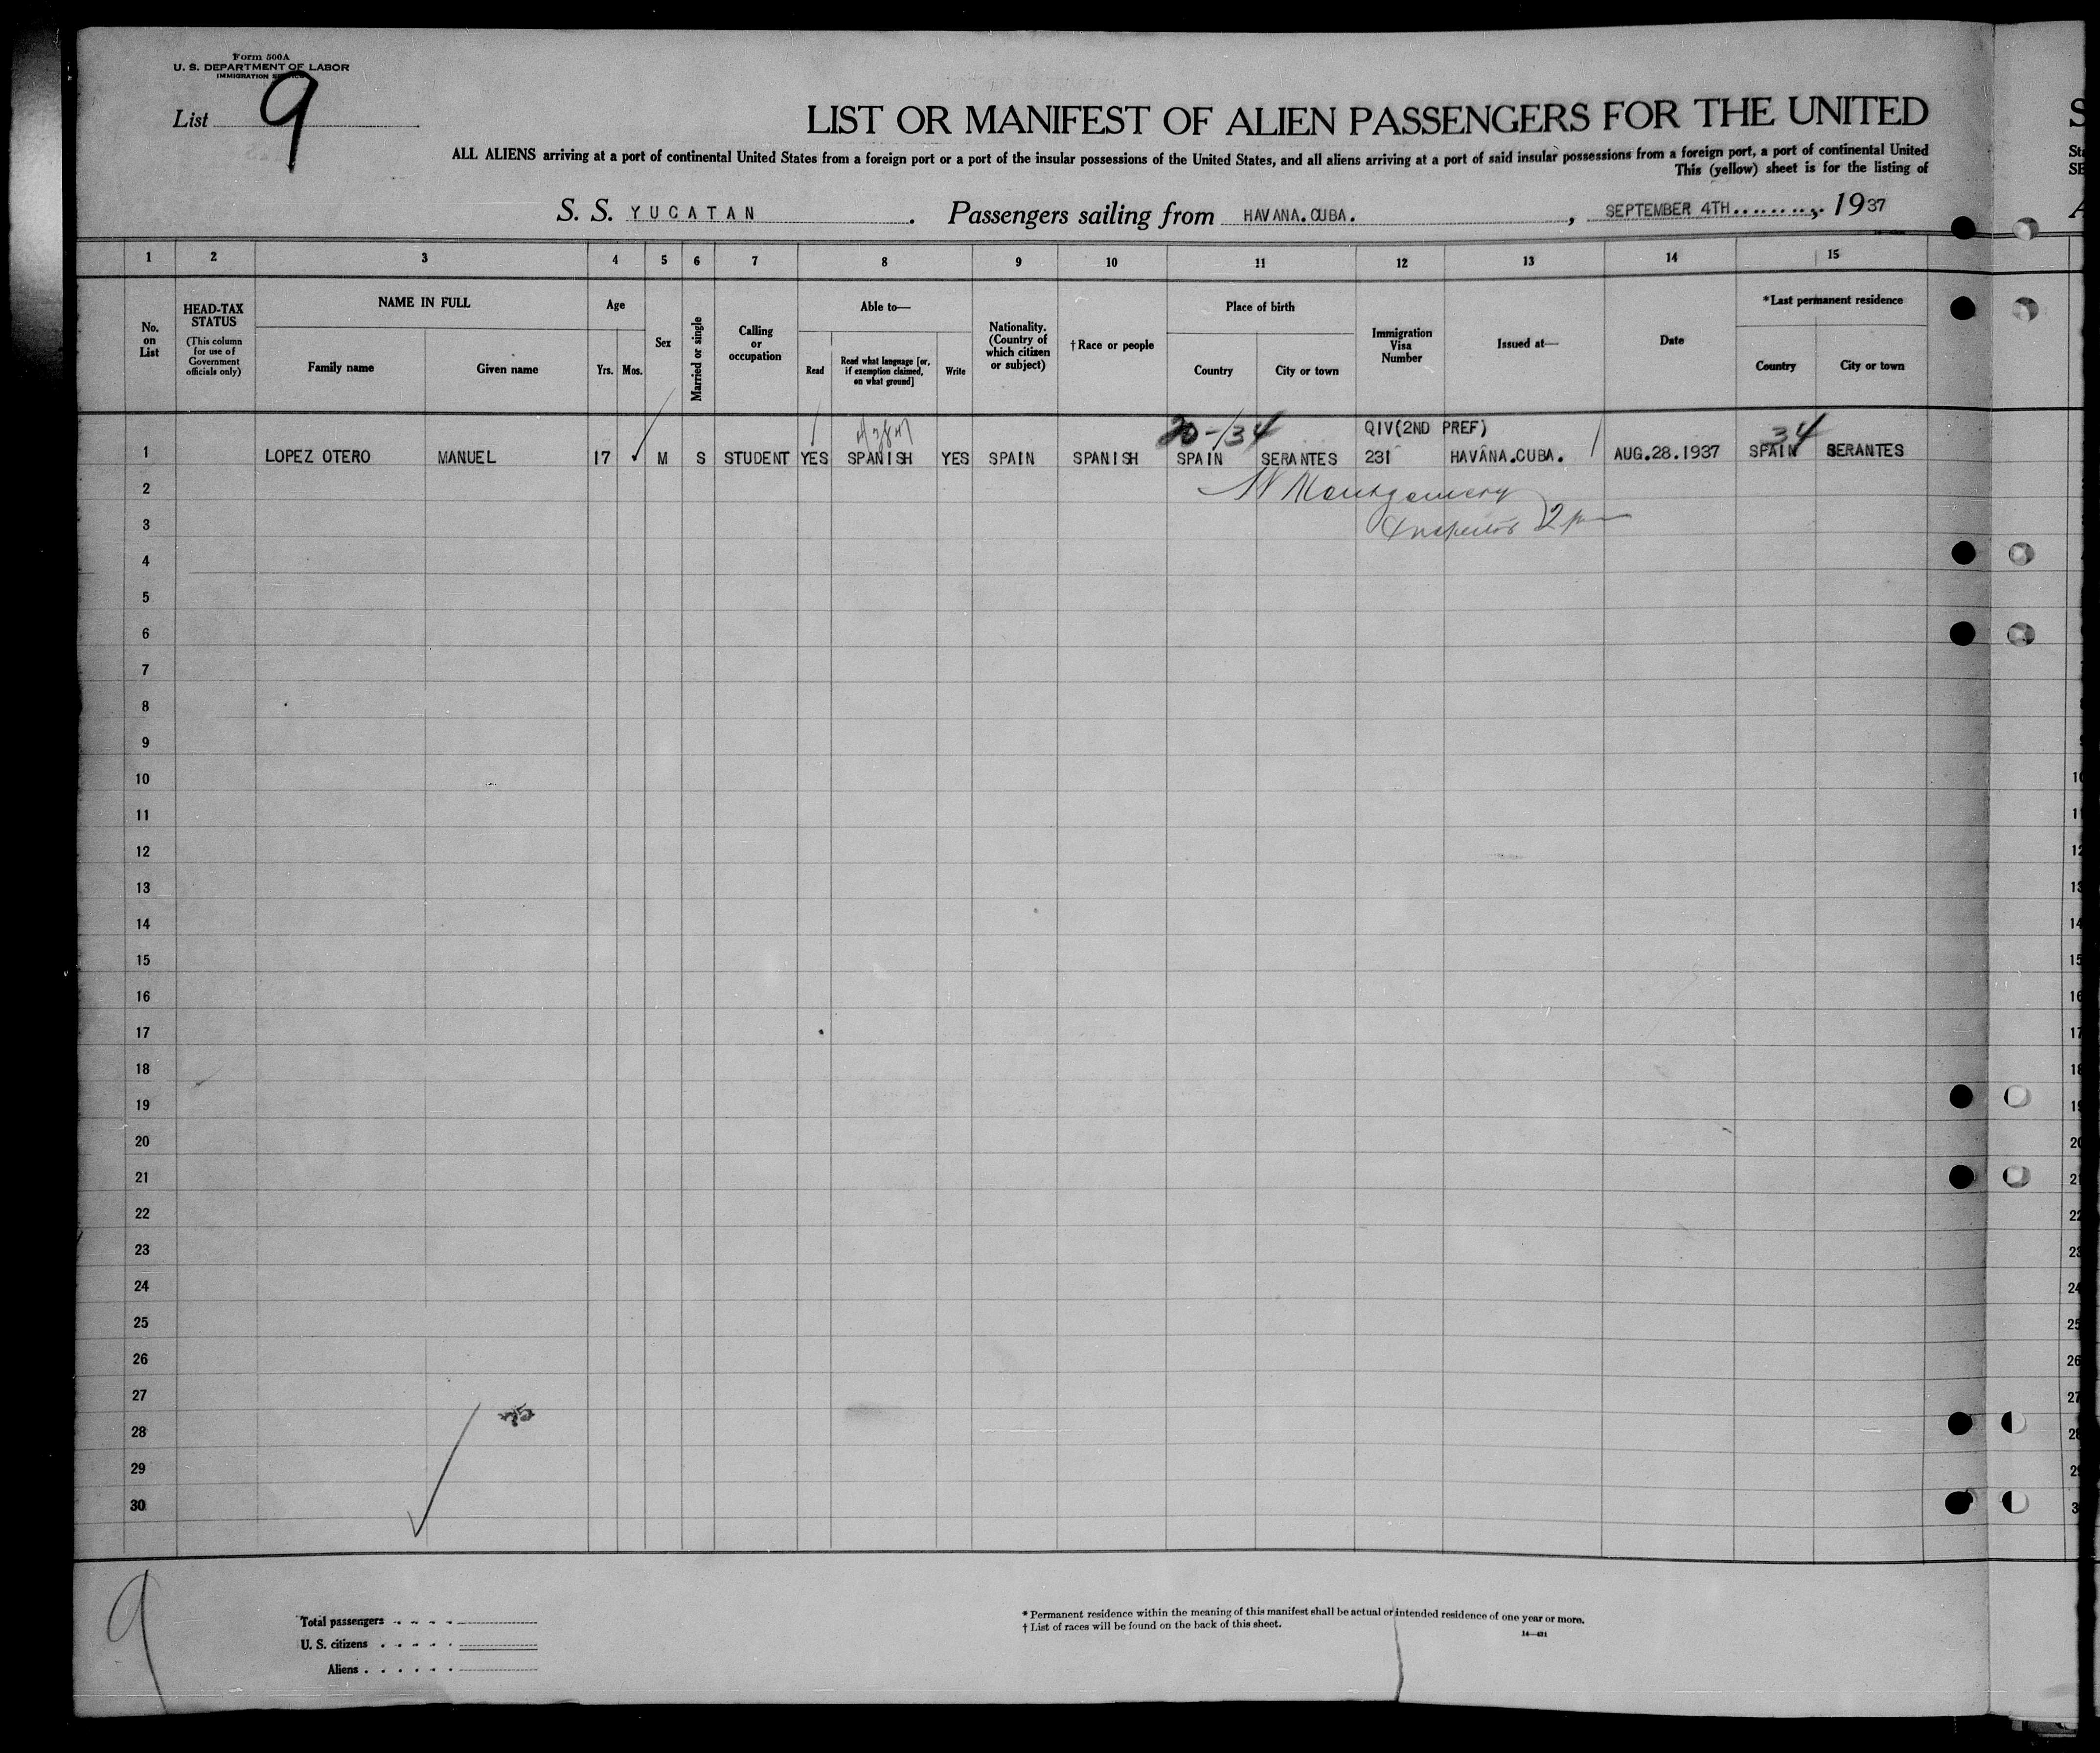 Form 500A
U. S. DEPARTMENT OF LABOR
IMMIGRATION
List 9
LIST OR MANIFEST OF ALIEN PASSENGERS FOR THE UNITED
ALL ALIENS arriving at a port of continental United States from a foreign port or a port of the insular possessions of the United States, and all aliens arriving at a port of said insular possessions from a foreign port, a port of continental United
This (yellow) sheet is for the listing of
S. S. YUCATAN. Passengers sailing from HAVANA.CUBA., SEPTEMBER 4TH........, 1937
1 2 3 4 5 6 7 8 9 10 11 12 13 14 15
No. on List
HEAD-TAX STATUS (This column for use of Government officials only)
NAME IN FULL
Family name Given name
Age
Yrs. Mos.
Sex
Married or single
Calling or occupation
Able to—
Read Read what language [or, if exemption claimed, on what ground] Write
Nationality. (Country of which citizen or subject)
† Race or people
Place of birth
Country City or town
Immigration Visa Number
Issued at—
Date
*Last permanent residence
Country City or town
20-/34 QIV(2ND PREF) 34
1 LOPEZ OTERO MANUEL 17 M S STUDENT YES SPANISH YES SPAIN SPANISH SPAIN SERANTES 231 HAVANA.CUBA. AUG.28.1937 SPAIN SERANTES
2 Montgomery
3 Inspector
4
5
6
7
8
9
10
11
12
13
14
15
16
17
18
19
20
21
22
23
24
25
26
27
28
29
30
9
Total passengers
U. S. citizens
Aliens
* Permanent residence within the meaning of this manifest shall be actual or intended residence of one year or more.
† List of races will be found on the back of this sheet.